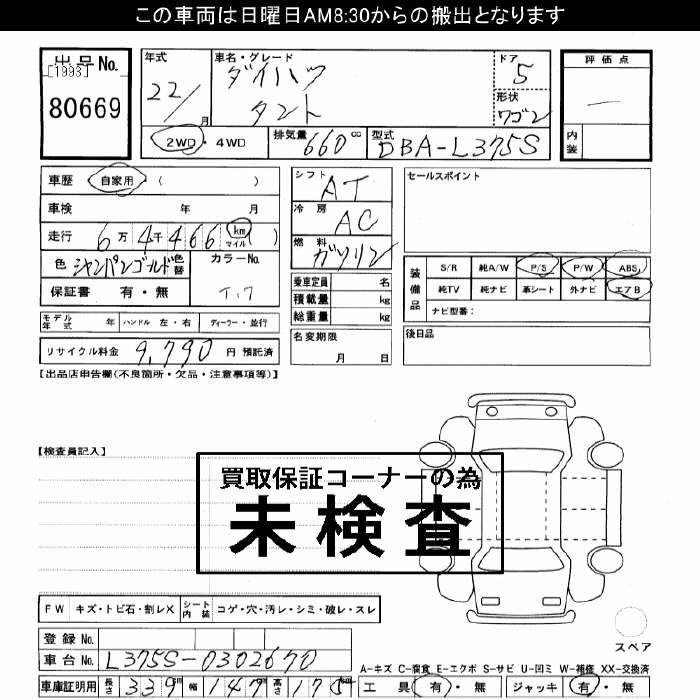 この車両は日曜日AM8:30からの搬出となります
出品No.
[1993]
80669
年式
22/ 月
車名・グレード
ダイハツ
タント
ドア
5
形状
ワゴン
評価点
内装
2WD・4WD
排気量 660 cc
型式 DBA-L375S
車歴 自家用 ( )
車検 年 月
走行 6万4千466 km マイル ( )
色 シャンパンゴールド 色替
カラーNo.
T17
保証書 有・無
シフト AT
冷房 AC
燃料 ガソリン
乗車定員 名
積載量 kg
総重量 kg
セールスポイント
装備品
S/R 純A/W P/S P/W ABS
純TV 純ナビ 革シート 外ナビ エアB
ナビ型番:
モデル年式 年 ハンドル 左・右 ディーラー・並行
リサイクル料金 9,790 円 預託済
名変期限
月 日
後日品
【出品店申告欄(不良箇所・欠品・注意事項等)】
【検査員記入】
買取保証コーナーの為
未検査
FW キズ・トビ石・割レX シート内装 コゲ・穴・汚レ・シミ・破レ・スレ
スペア
登録No.
車台No. L375S-0302670
A-キズ C-腐食 E-エクボ S-サビ U-凹ミ W-補修 XX-交換済
車庫証明用 長さ 339 幅 147 高さ 175
工具 有・無 ジャッキ 有・無